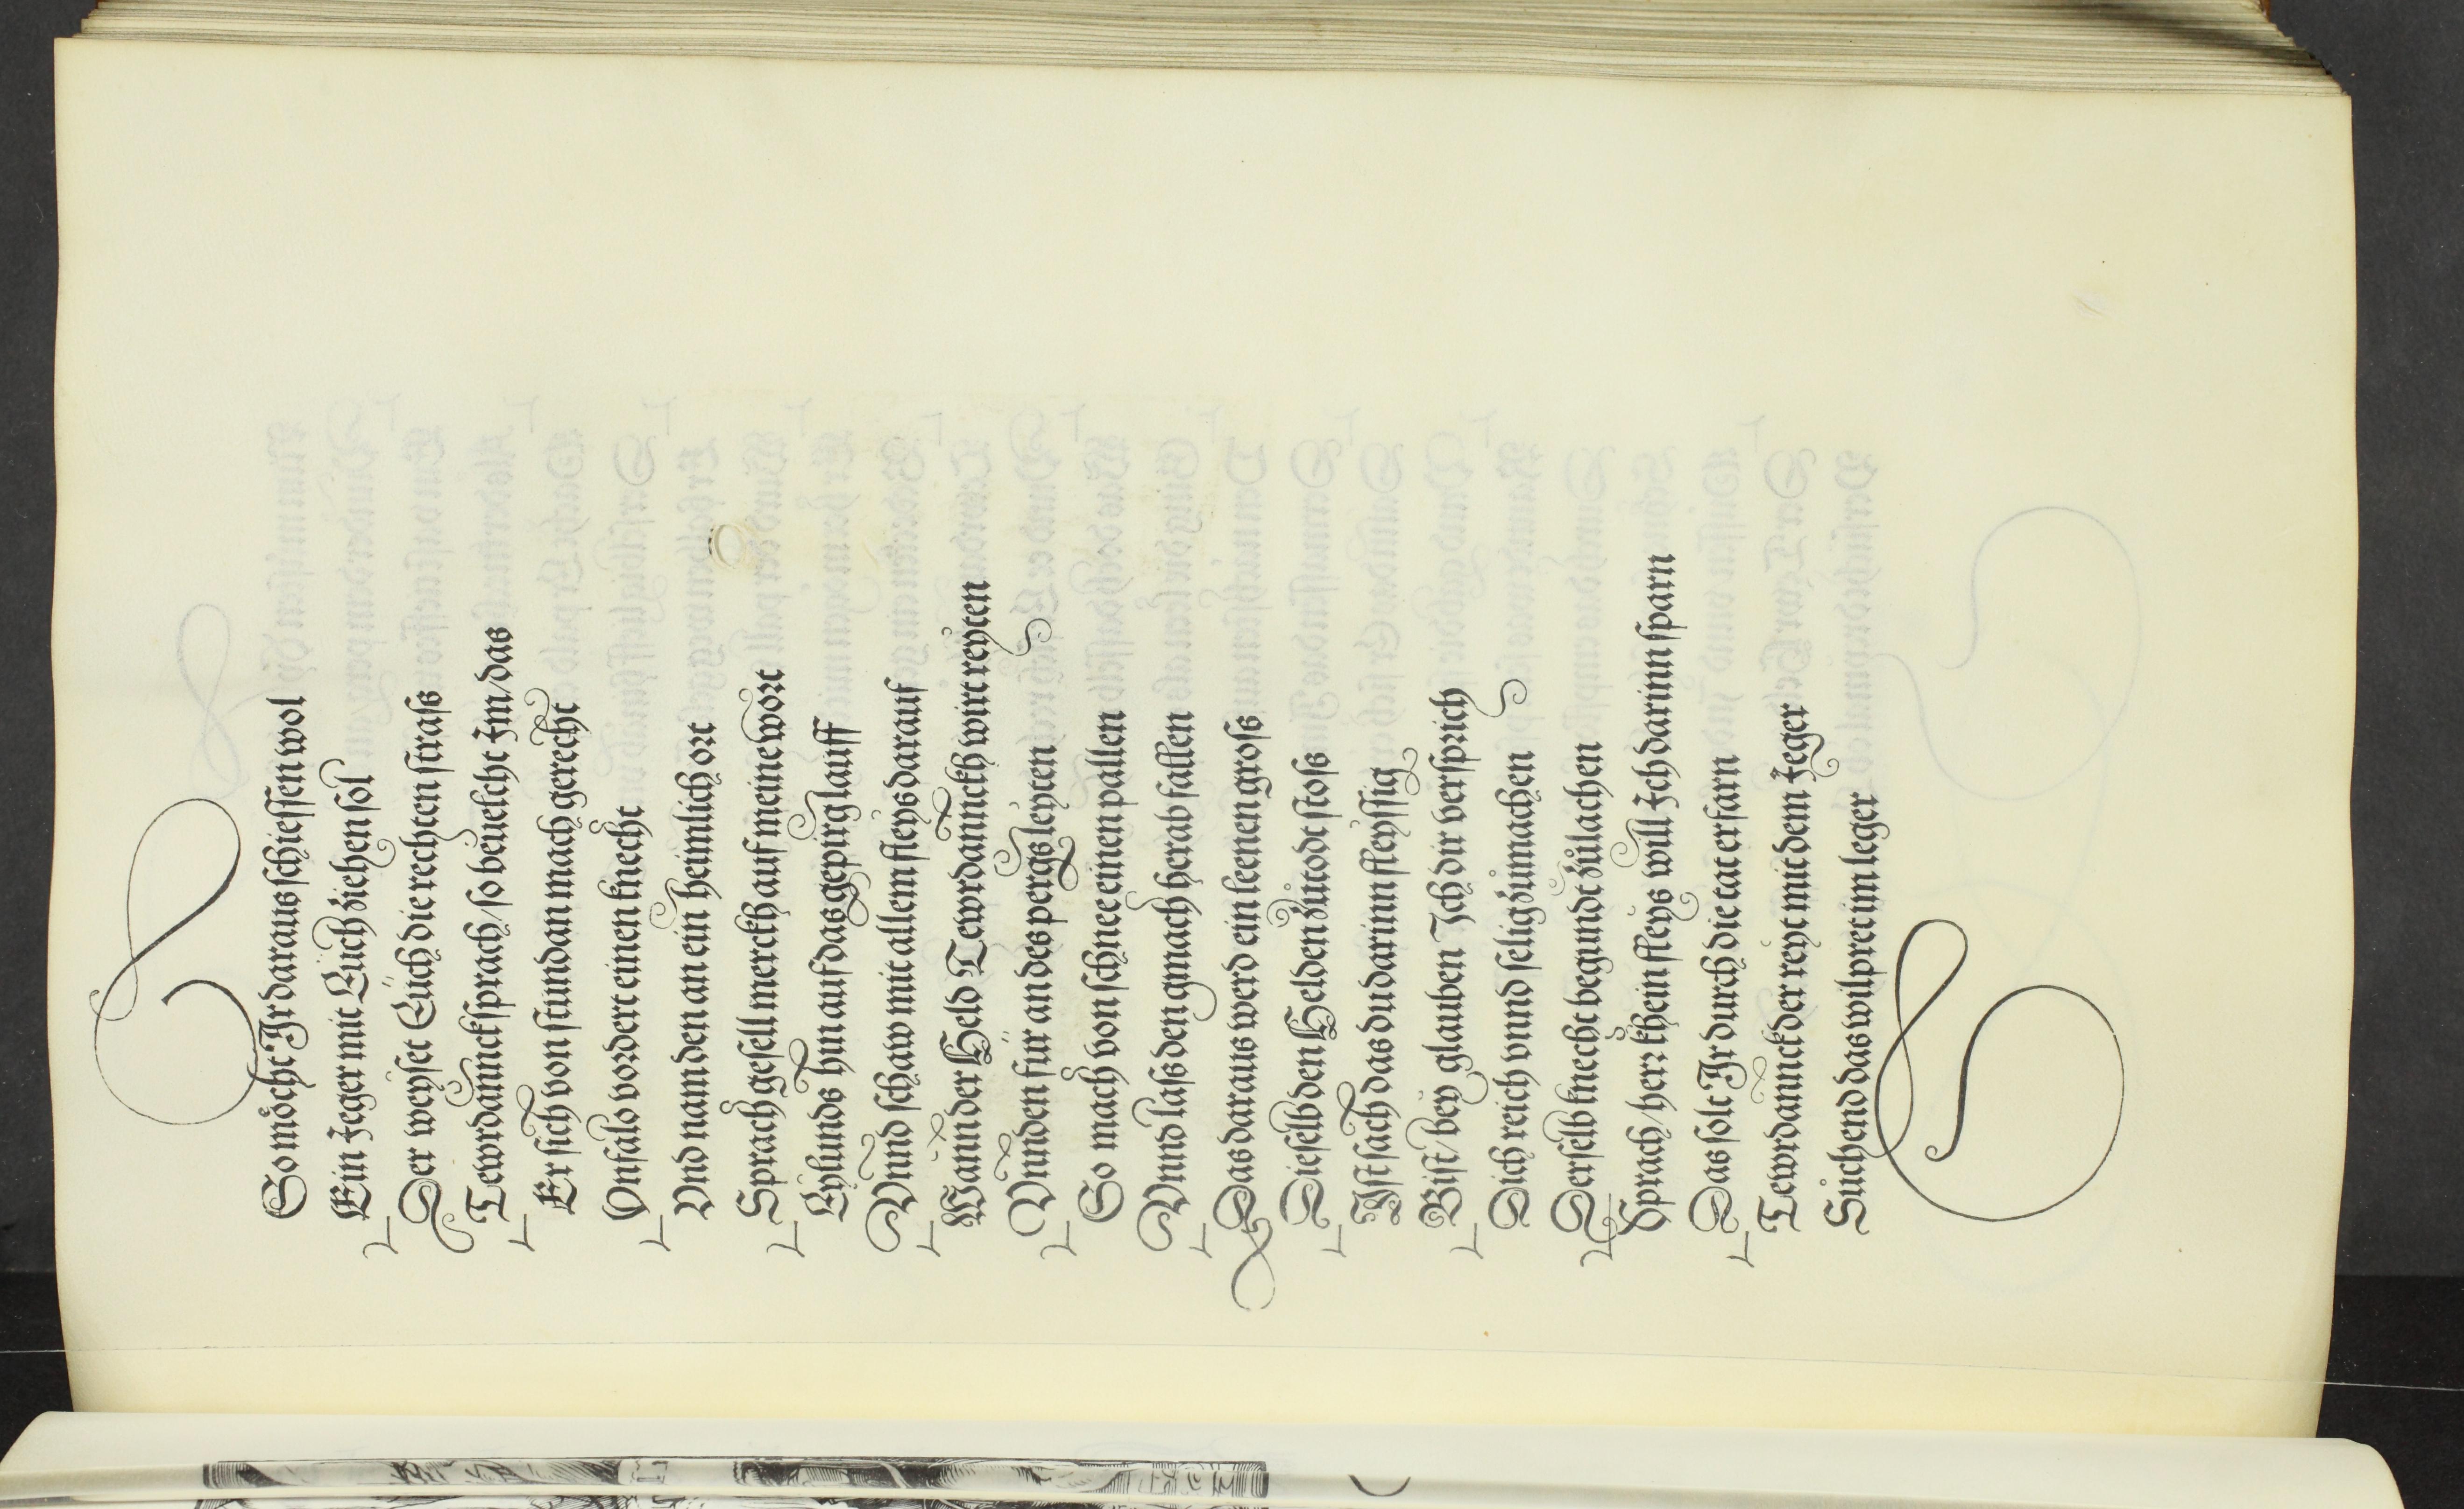 So möcht Ir daraus schiessen wol
Ein Jeger mit Euch ziehen sol
Der weyset Eüch die rechten straß
Tewrdannck sprach/ so beuelcht Im/ das
Er sich von stundan mach gerecht
Vnfalo vordert einen knecht
Vnd nam den an ein heimlich ort
Sprach gesell merckh auf meine wort
Eylunds hin auf das gepirg lauff
Vnnd schaw mit allem fleys darauf
Wann der Held Tewrdannckh wirt reyten
Vnnden für an des pergs leyten
So mach von schnee einen pallen
Vnnd laß den gmach herab fallen
Das daraus werd ein leenen groß
Dieselb den Helden zůtodt stoß
Ist sach das du darinn fleyssig
Bist/ bey glauben Ich dir versprich
Dich reich vnnd selig zůmachen
Derselb knecht begundt zůlachen
Sprach/ herr khein fleys will Ich darinn sparn
Das solt Ir durch die tat erfarn
Tewrdannck der reyt mit dem Jeger
Sůchend das wilpret im leger